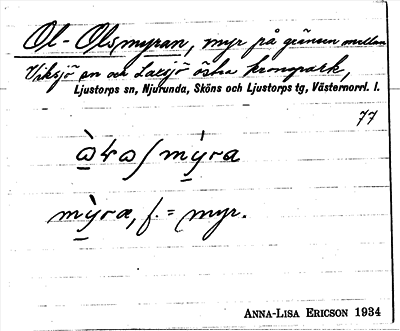 Ol- Olsmyran, myr på gränsen mellan
Viksjö sn och Laxsjö östra kronopark,
Ljustorps sn, Njurunda, Sköns och Ljustorps tg, Västernorrl. l.
77
mỳra, f. = myr.
ANNA-LISA ERICSON 1934